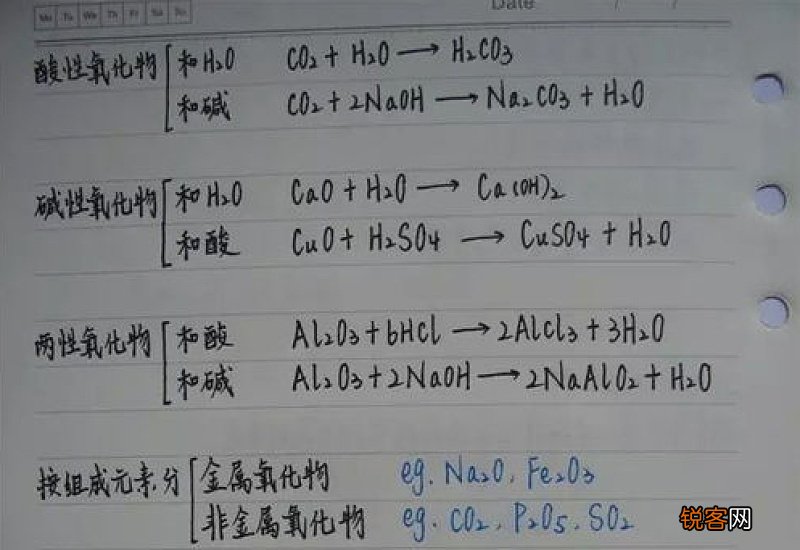 Mo Tu We Th Fr Sa Su
Date / /
酸性氧化物 和H₂O CO₂ + H₂O → H₂CO₃
和碱 CO₂ + 2NaOH → Na₂CO₃ + H₂O
碱性氧化物 和H₂O CaO + H₂O → Ca(OH)₂
和酸 CuO + H₂SO₄ → CuSO₄ + H₂O
两性氧化物 和酸 Al₂O₃ + 6HCl → 2AlCl₃ + 3H₂O
和碱 Al₂O₃ + 2NaOH → 2NaAlO₂ + H₂O
按组成元素分 金属氧化物 eg. Na₂O, Fe₂O₃
非金属氧化物 eg. CO₂, P₂O₅, SO₂
锐客网